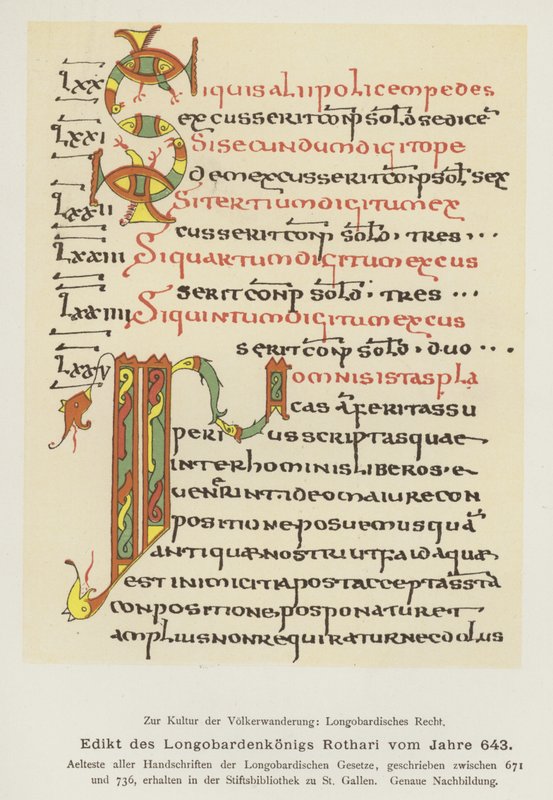 LXX Siquis alii policem pedes
excusserit conp sold sedice
LXXI Si secundum digito pe
dem excusserit conp sol sex
LXXII Si tertium digitum ex
cusserit conp sold · tres ···
LXXIII Si quartum digitum excus
serit conp sold · tres ···
LXXIIII Si quintum digitum excus
serit conp sold · duo ···
LXXV In omnis istas pla
cas aferitas su
perius scriptas quae
inter hominis liberos · e
uenerint · ideo maiure con
positione posuemus qua
antiquae nostri ut faida quae
est inimicitia post accepta ssta
conpositione, posponatur et
amplius non requiratur nec dolus
Zur Kultur der Völkerwanderung: Longobardisches Recht.
Edikt des Longobardenkönigs Rothari vom Jahre 643.
Aelteste aller Handschriften der Longobardischen Gesetze, geschrieben zwischen 671
und 736, erhalten in der Stiftsbibliothek zu St. Gallen. Genaue Nachbildung.